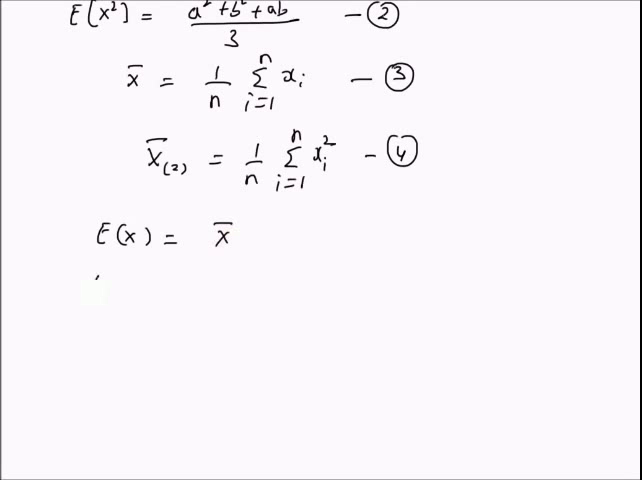 E[x²] = a² + b² + ab / 3 — ②
x̄ = 1/n Σ_{i=1}^{n} xᵢ — ③
X̄₍₂₎ = 1/n Σ_{i=1}^{n} xᵢ² — ④
E(x) = x̄